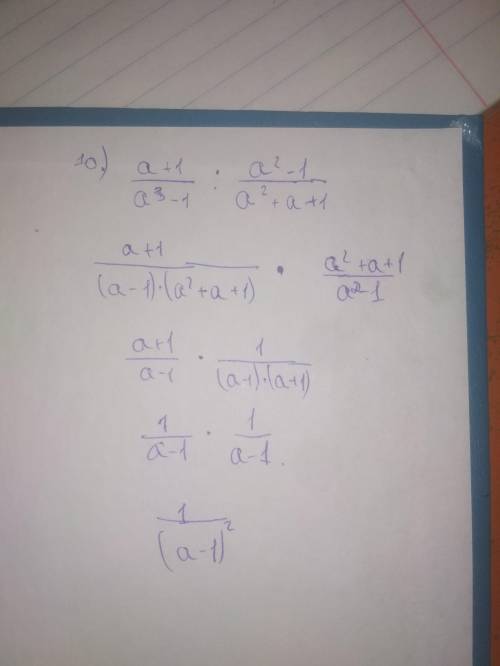 10.) (a+1)/(a³-1) : (a²-1)/(a²+a+1)
(a+1)/((a-1)·(a²+a+1)) · (a²+a+1)/(a²-1)
(a+1)/(a-1) · 1/((a-1)·(a+1))
1/(a-1) · 1/(a-1).
1/(a-1)²